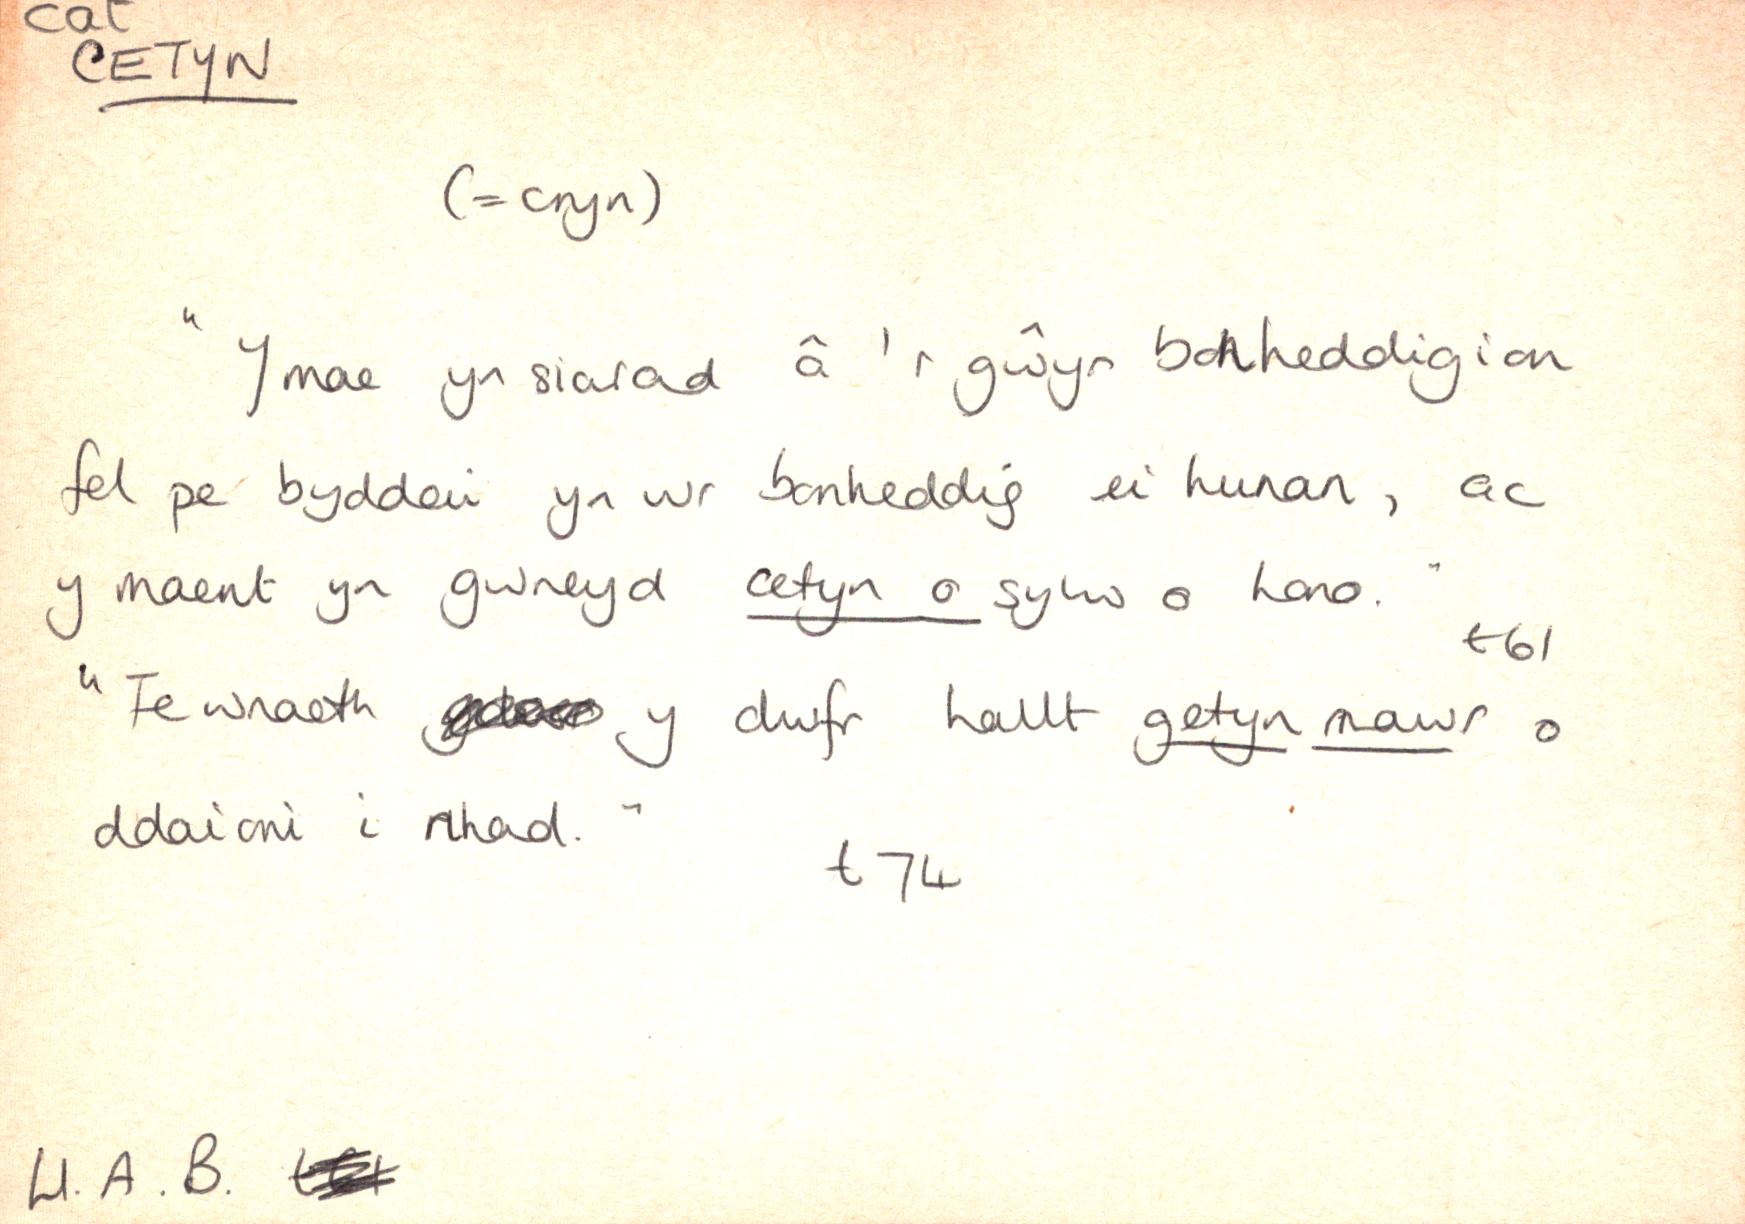 cat
CETYN
(= cryn)
"Y mae yn siarad â 'r gŵyr bonheddigion
fel pe byddai yn wr bonheddig ei hunan, ac
y maent yn gwneyd cetyn o sylw o hono."
t61
"Fe wnaeth y dwfr hallt getyn mawr o
ddaioni i nhad."
t74
Ll. A. B.